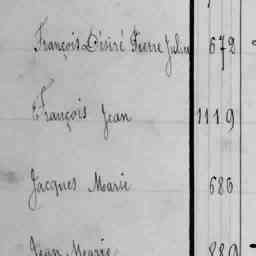 François Désiré Pierre Julien 672
François Jean 1119
Jacques Marie 686
Jean Marie 889